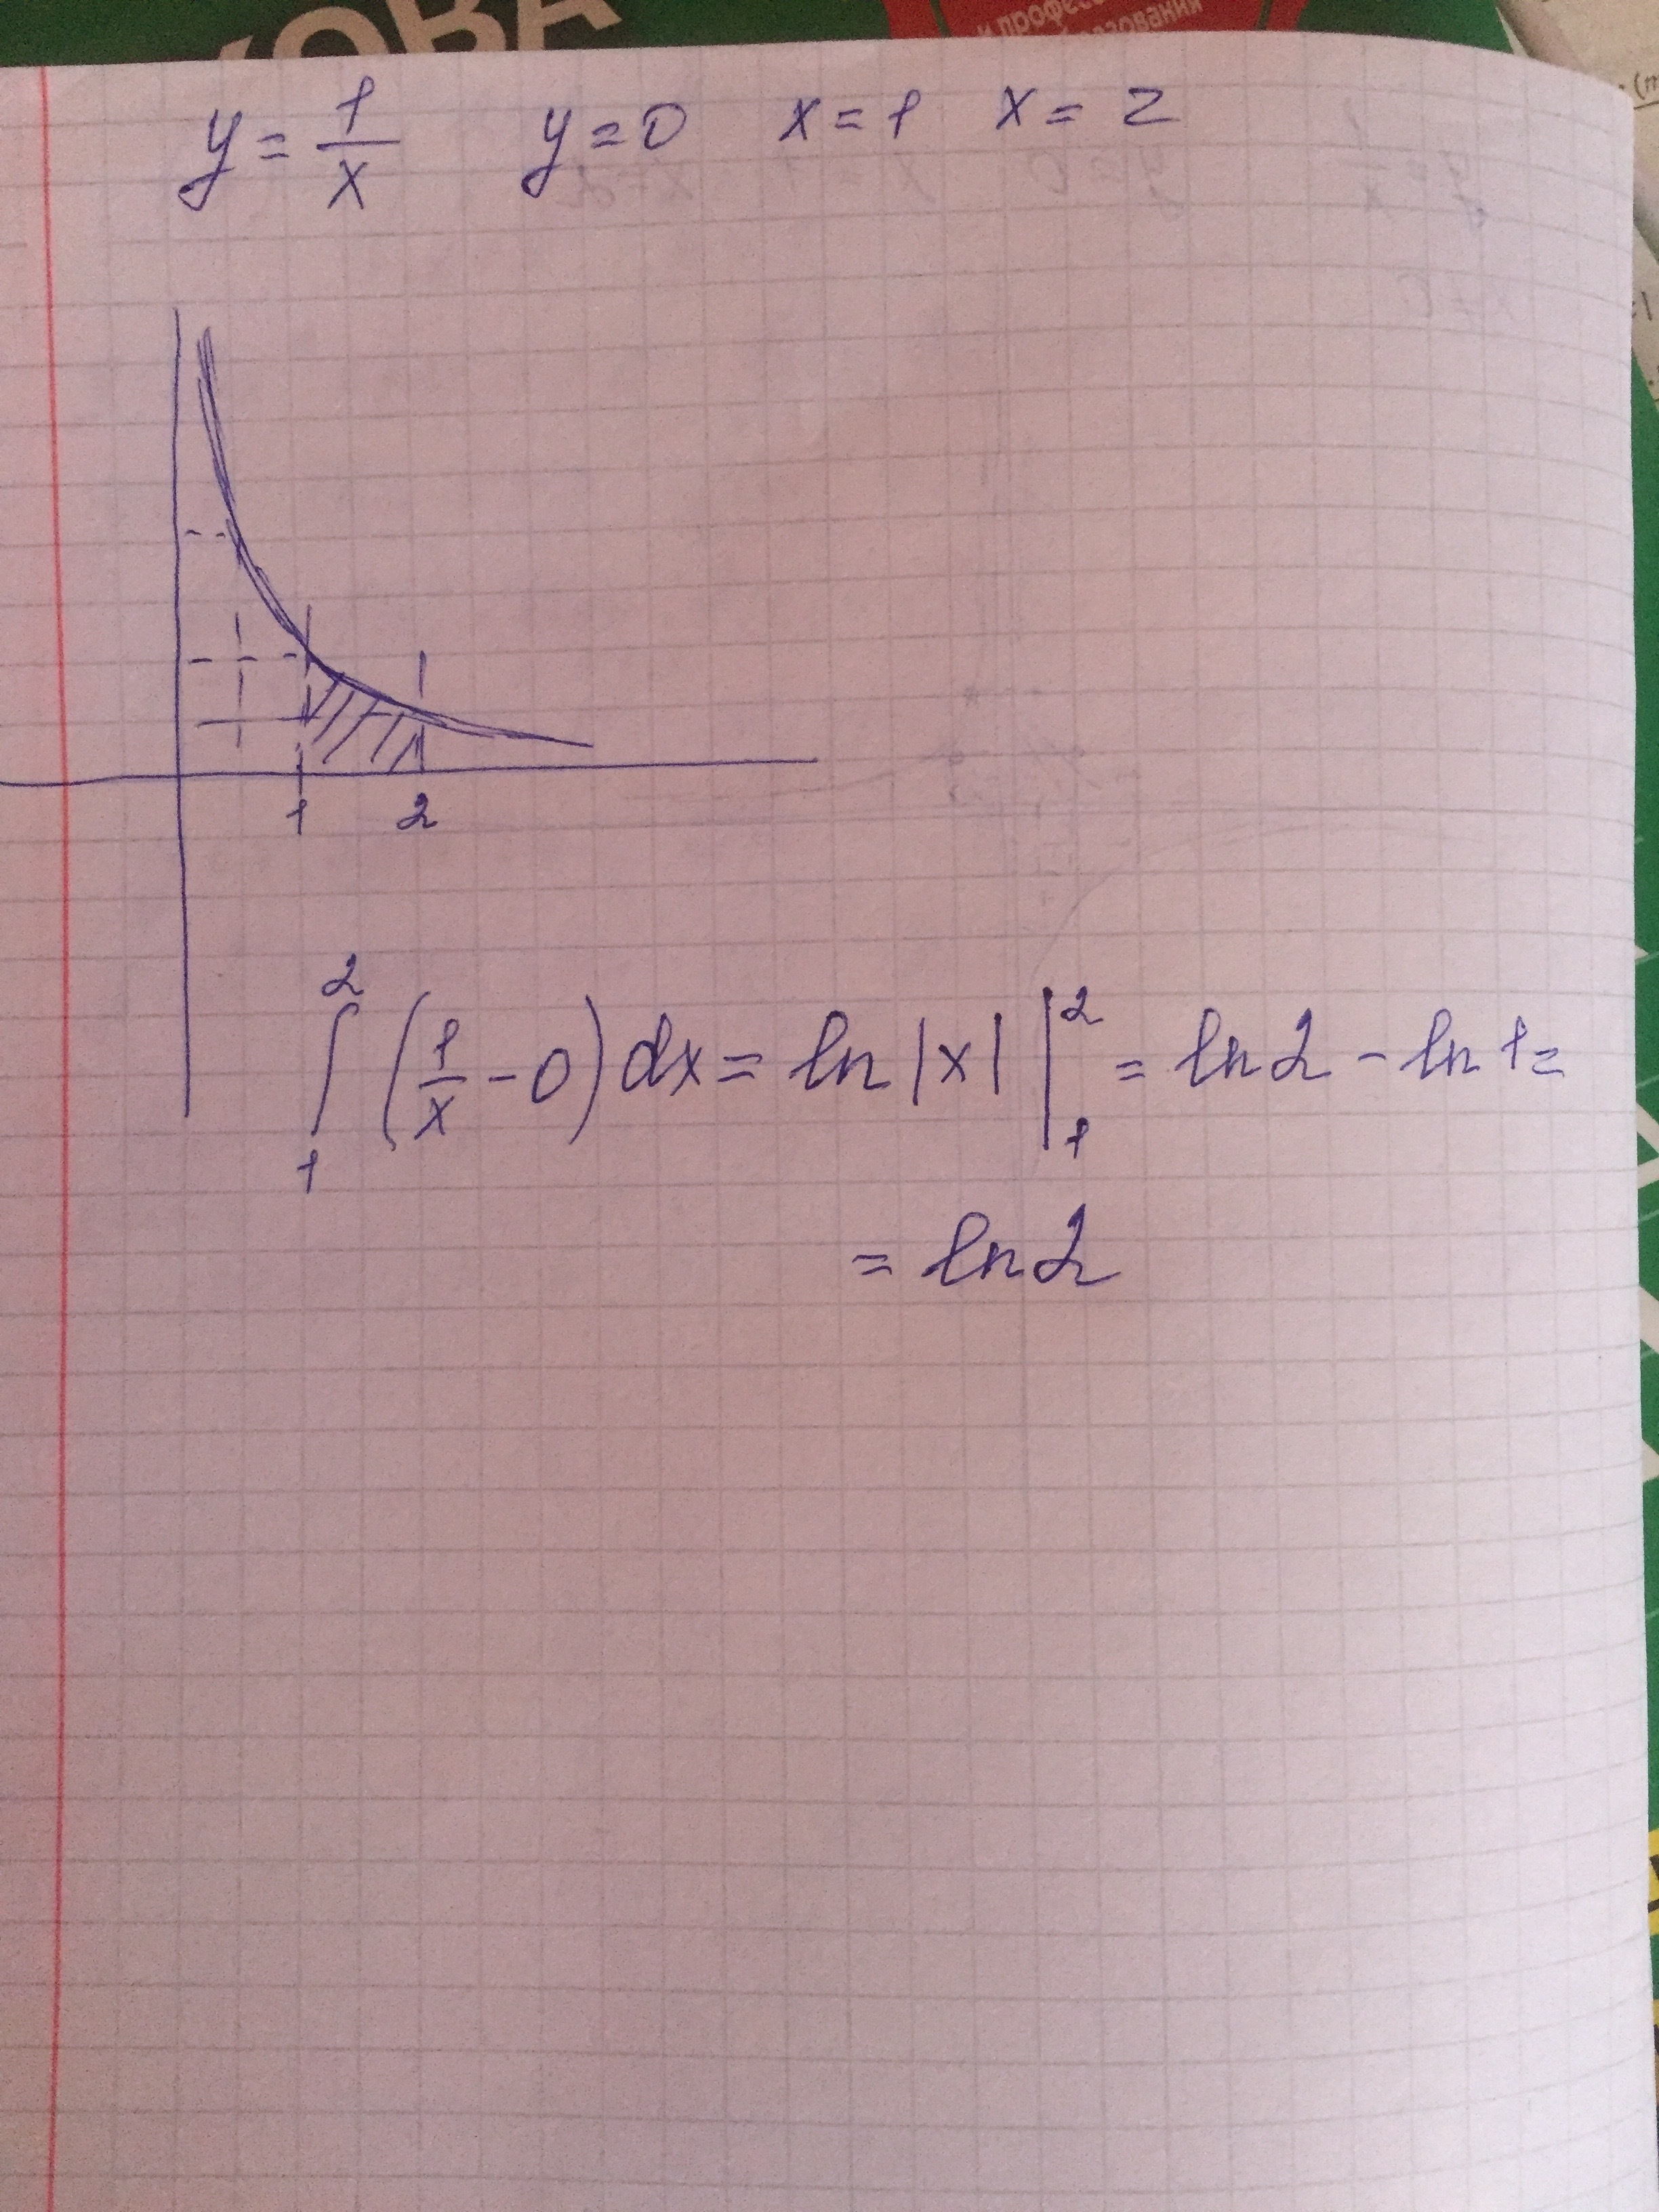 КОВА
и профес
зования
y = 1/x y = 0 x = 1 x = 2
1 2
∫₁² (1/x - 0) dx = ln |x| |₁² = ln 2 - ln 1 =
= ln 2